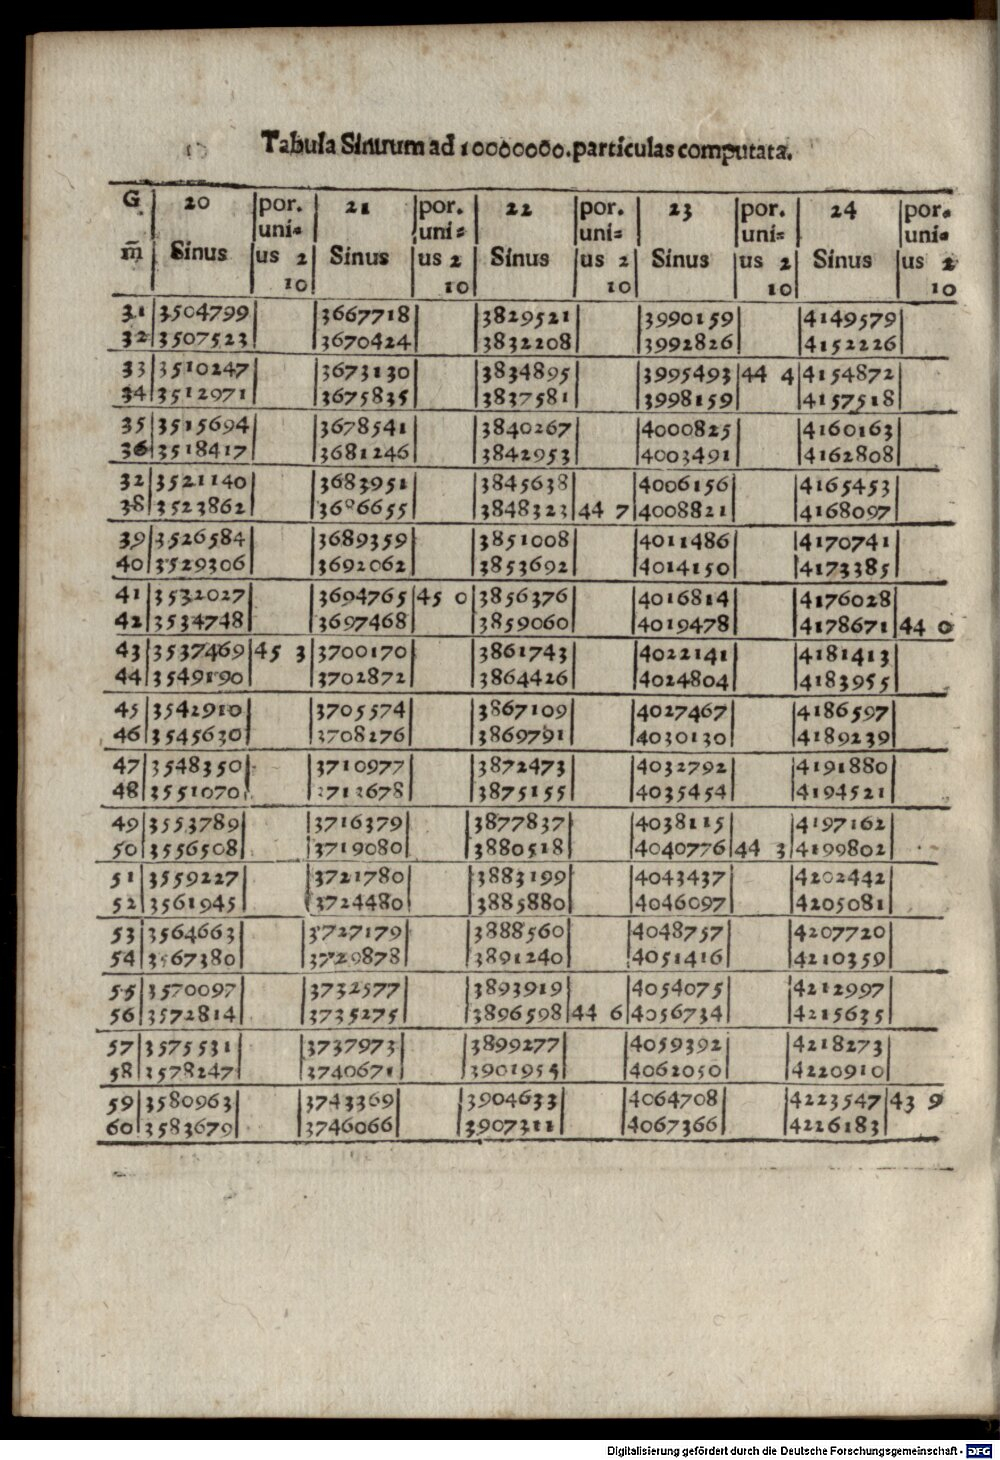 Tabula Sinuum ad 10000000. particulas computata.
G 20 por. 21 por. 22 por. 23 por. 24 por.
uni= uni= uni= uni= uni=
m̃ Sinus us 2 Sinus us 2 Sinus us 2 Sinus us 2 Sinus us 2
10 10 10 10 10
31 3504799 3667718 3829521 3990159 4149579
32 3507523 3670424 3832208 3992826 4152226
33 3510247 3673130 3834895 3995493 44 4 4154872
34 3512971 3675835 3837581 3998159 4157518
35 3515694 3678541 3840267 4000825 4160163
36 3518417 3681246 3842953 4003491 4162808
32 3521140 3683951 3845638 4006156 4165453
38 3523862 3686655 3848323 44 7 4008821 4168097
39 3526584 3689359 3851008 4011486 4170741
40 3529306 3692062 3853692 4014150 4173385
41 3532027 3694765 45 0 3856376 4016814 4176028
42 3534748 3697468 3859060 4019478 4178671 44 0
43 3537469 45 3 3700170 3861743 4022141 4181413
44 3549190 3702872 3864426 4024804 4183955
45 3542910 3705574 3867109 4027467 4186597
46 3545630 3708276 3869791 4030130 4189239
47 3548350 3710977 3872473 4032792 4191880
48 3551070 3713678 3875155 4035454 4194521
49 3553789 3716379 3877837 4038115 4197162
50 3556508 3719080 3880518 4040776 44 3 4199802
51 3559227 3721780 3883199 4043437 4202442
52 3561945 3724480 3885880 4046097 4205081
53 3564663 3727179 3888560 4048757 4207720
54 3567380 3729878 3891240 4051416 4210359
55 3570097 3732577 3893919 4054075 4212997
56 3572814 3735275 3896598 44 6 4056734 4215635
57 3575531 3737973 3899277 4059392 4218273
58 3578247 3740671 3901954 4062050 4220910
59 3580963 3743369 3904633 4064708 4223547 43 9
60 3583679 3746066 3907311 4067366 4226183
Digitalisierung gefördert durch die Deutsche Forschungsgemeinschaft - DFG